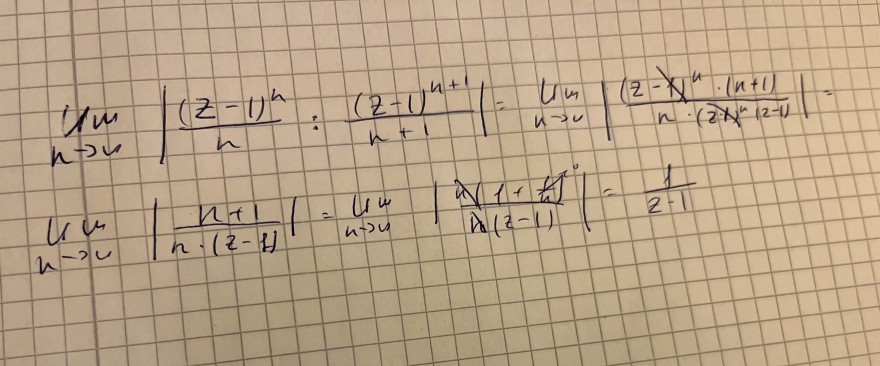 lim n→∞ | (z-1)^n / n : (z-1)^(n+1) / (n+1) | = lim n→∞ | (z-1)^n · (n+1) / n · (z-1)^n (z-1) | =
lim n→∞ | n+1 / n · (z-1) | = lim n→∞ | n(1 + 1/n)→0 / n(z-1) | = 1 / z-1